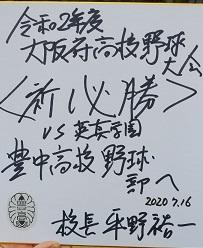 令和2年度
大阪府高校野球
大会
<祈必勝>
VS 英真学園
豊中高校野球
部へ
2020 7.16
校長 平野裕一